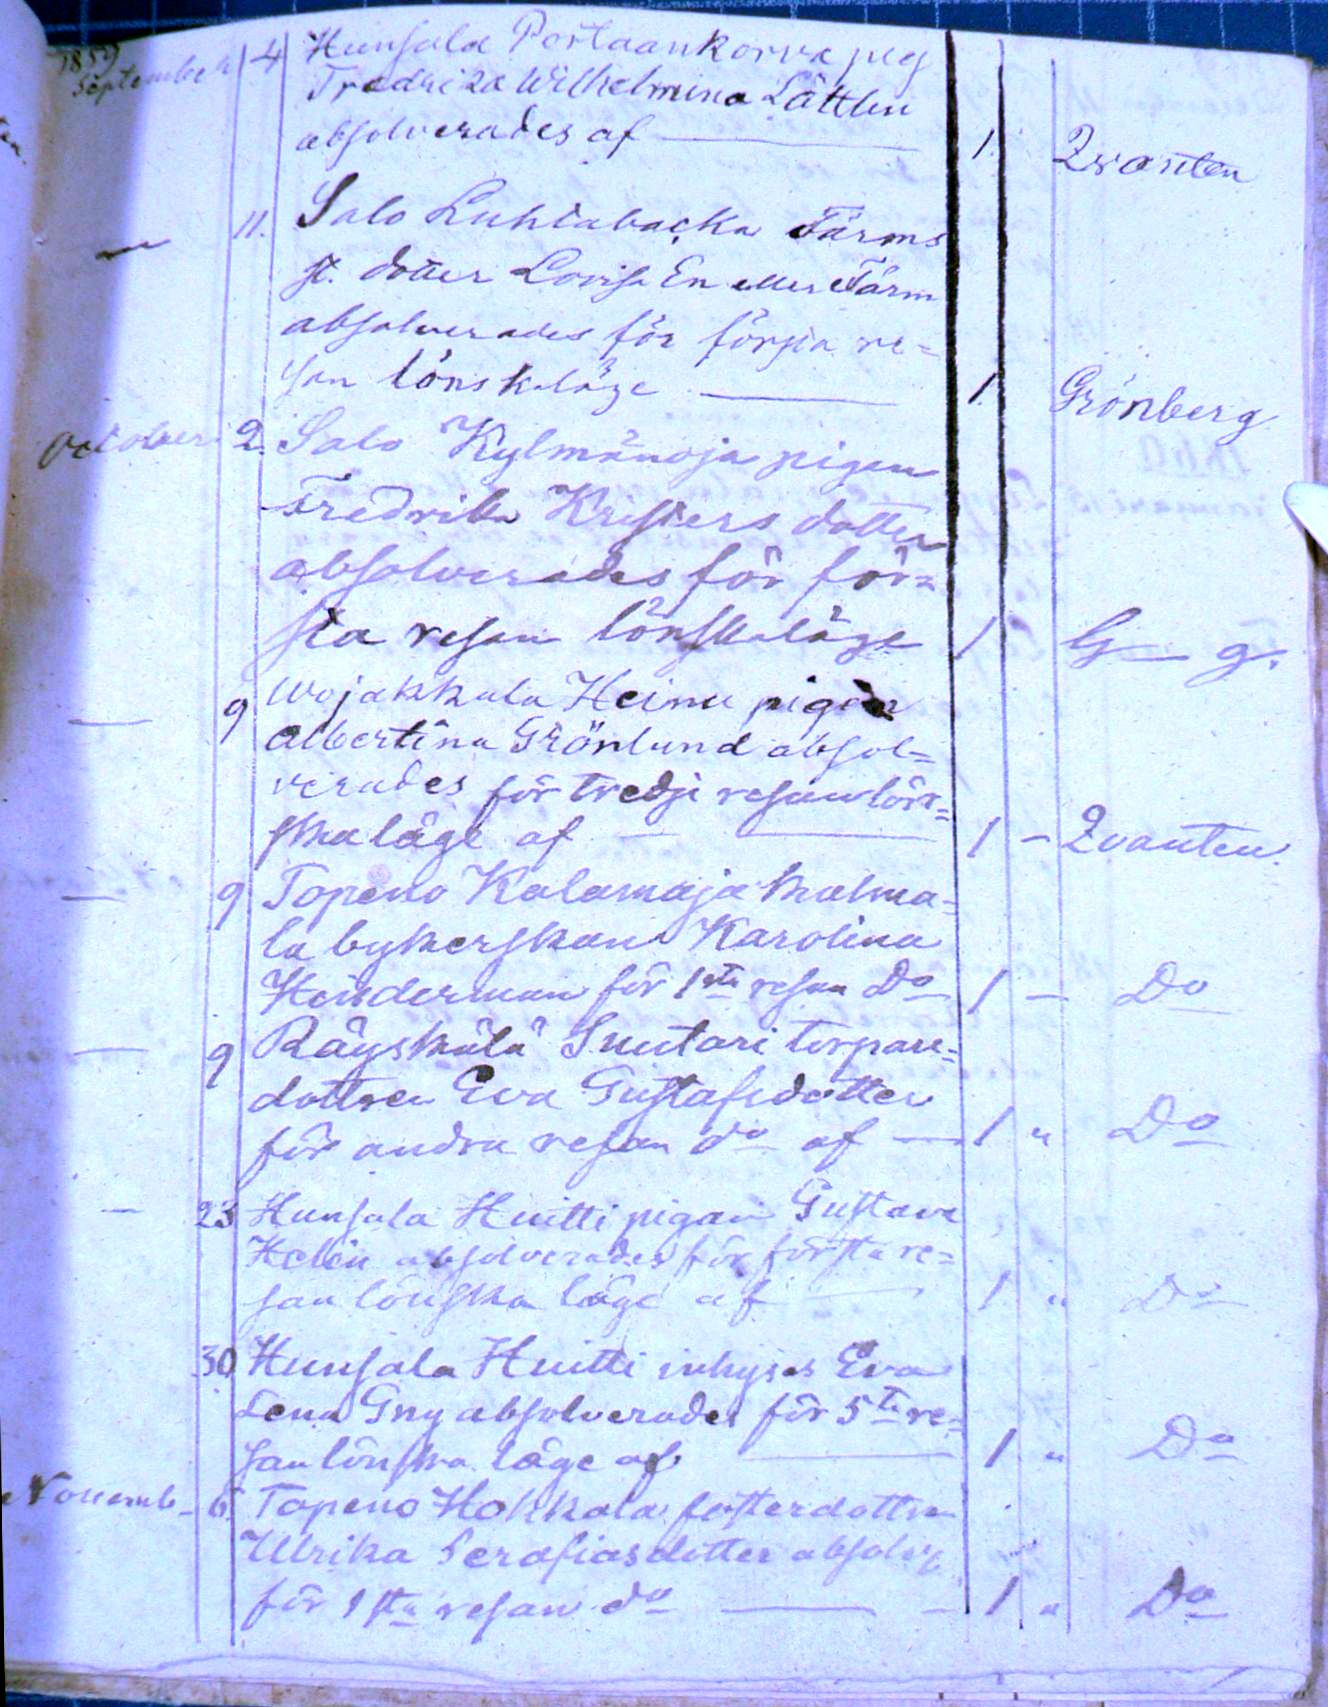 1859
September 4 Hunsala Portaankorva pig
Fredrika Wilhelmina Lättlin
absolverades af — 1 Qvanten
— 11. Salo Luhtabacka Färms
st. dotter Lovisa En eller Färm
absolverades för första re=
san lönskaläge — 1 Grönberg
October 2. Salo Kylmänoja pigan
Fredrika Kristersdotter
absolverades för för=
sta resan lönskaläge 1 G— g.
— 9 Wojakkala Heinu pigan
Albertina Grönlund absol=
verades för tredje resan lön=
skaläge af — 1 – Qvanten.
— 9 Topeno Kalamaja
la bykerskan Karolina
Henderman för 1sta resan Do 1 – Do
— 9 Räyskälä Suutari torpare=
dottren Eva Gustafsdotter
för andra resan do af — 1 " Do
— 23 Hunsala Huitti pigan Gustava
Helin absolverades för första re=
san lönska läge af — 1 " Do
30 Hunsala Huitti inhyses Eva
Lena Gny absolverades för 5te re=
san lönska läge af — 1 " Do
Novemb. 6. Topeno Hokkala fosterdottren
Ulrika Serafiasdotter absolv
för 1sta resan do — 1 " Do